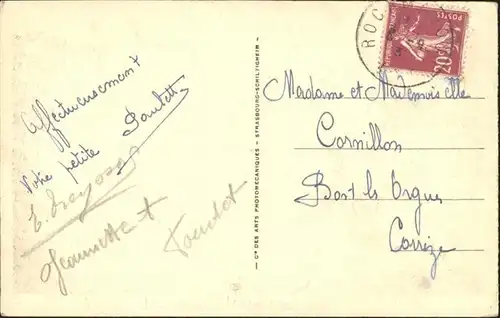 Affectueusement
Votre petite Paulette
Jeannette
Cie DES ARTS PHOTOMECANIQUES - STRASBOURG-SCHILTIGHEIM -
ROC
POSTES
20c
Madame et Mademoiselle
Cornillon
Bort les Orgues
Corrèze